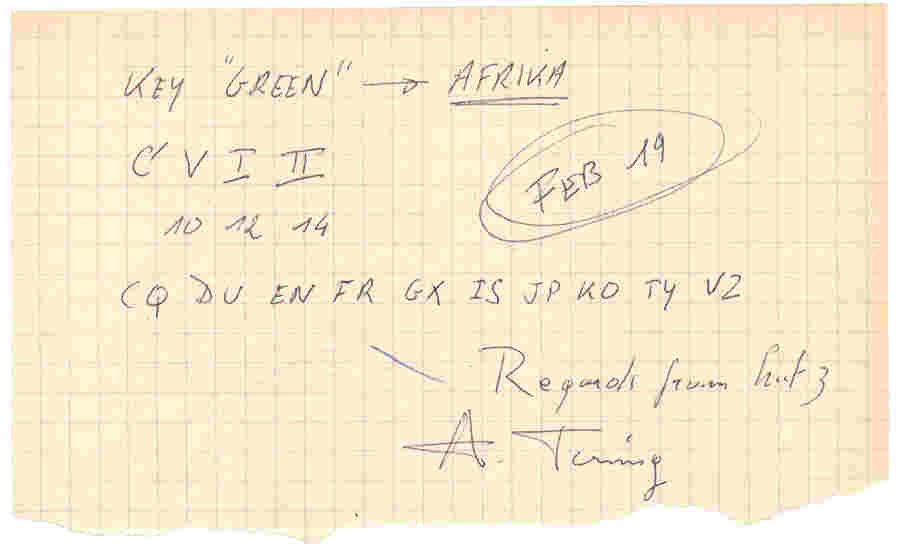 KEY "GREEN" → AFRIKA
C V I II
FEB 19
10 12 14
CQ DU EN FR GX IS JP KO TY VZ
Regards from hut 3
A. Turing